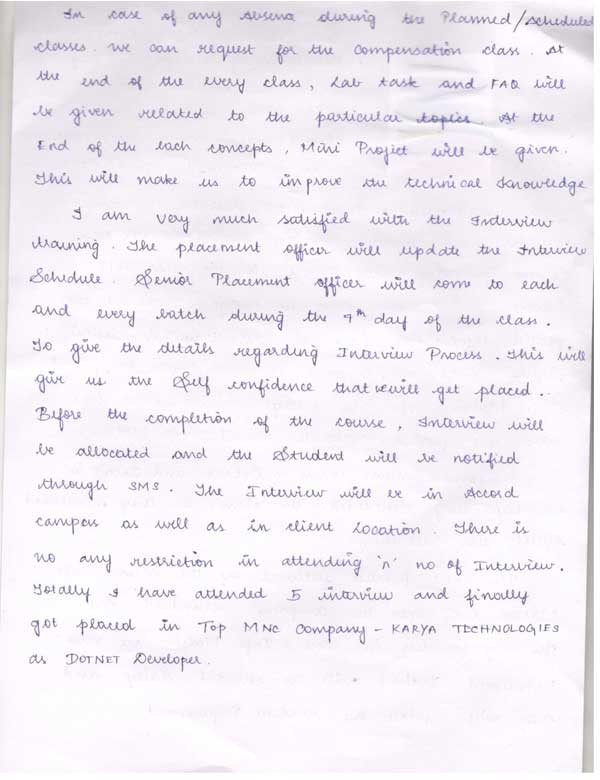 In case of any Absence during the Planned/scheduled
classes. we can request for the compensation class. At
the end of the every class, Lab task and FAQ will
be given related to the particular topics. At the
End of the each concepts, Mini Project will be given.
This will make us to improve the technical Knowledge
I am very much satisfied with the Interview
training. The placement officer will update the Interview
Schedule. Senior Placement officer will come to each
and every batch during the 9th day of the class.
To give the details regarding Interview Process. This will
give us the Self confidence that we will get placed.
Before the completion of the course, Interview will
be allocated and the Student will be notified
through SMS. The Interview will be in Accord
campus as well as in client Location. There is
no any restriction in attending 'n' no of Interview.
Totally I have attended 5 interview and finally
got placed in Top MNC Company - KARYA TECHNOLOGIES
as DOTNET Developer.